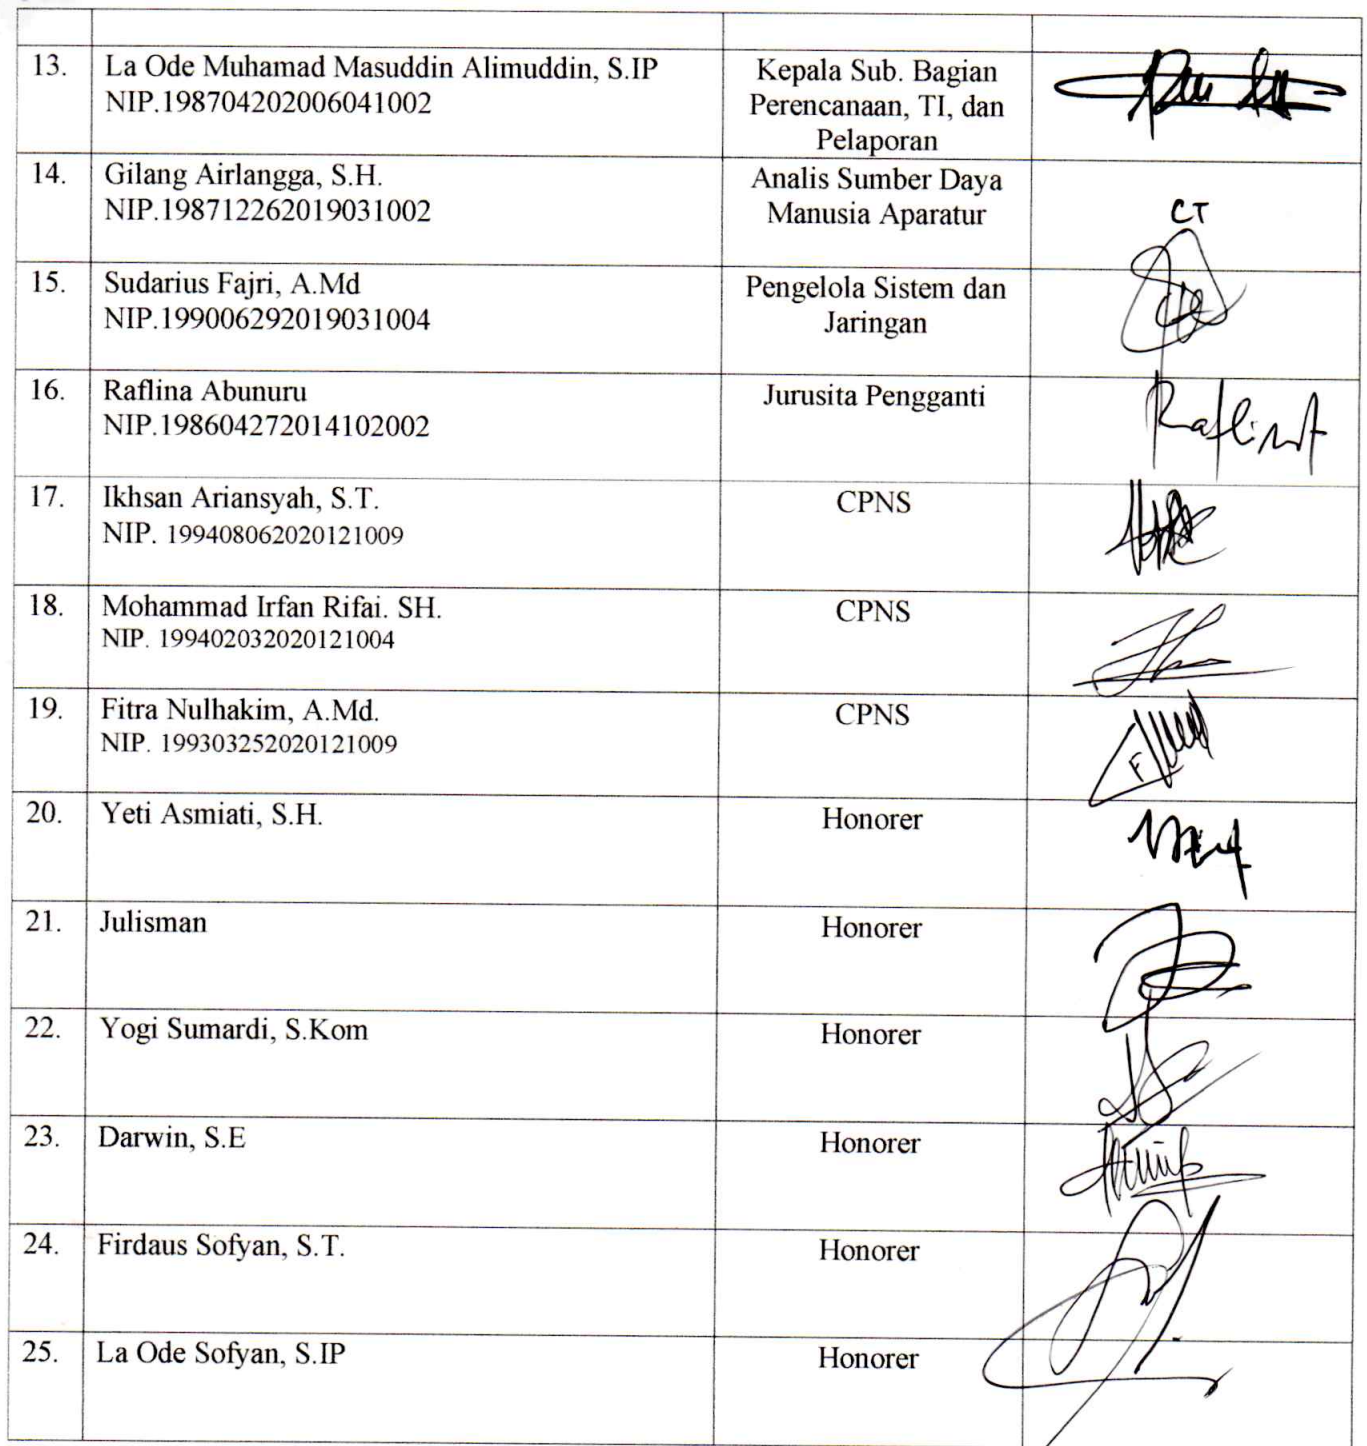 13.
La Ode Muhamad Masuddin Alimuddin, S.IP
NIP.198704202006041002
Kepala Sub. Bagian
Perencanaan, TI, dan
Pelaporan
14.
Gilang Airlangga, S.H.
NIP.198712262019031002
Analis Sumber Daya
Manusia Aparatur
CT
15.
Sudarius Fajri, A.Md
NIP.199006292019031004
Pengelola Sistem dan
Jaringan
16.
Raflina Abunuru
NIP.198604272014102002
Jurusita Pengganti
17.
Ikhsan Ariansyah, S.T.
NIP. 199408062020121009
CPNS
18.
Mohammad Irfan Rifai. SH.
NIP. 199402032020121004
CPNS
19.
Fitra Nulhakim, A.Md.
NIP. 199303252020121009
CPNS
20.
Yeti Asmiati, S.H.
Honorer
21.
Julisman
Honorer
22.
Yogi Sumardi, S.Kom
Honorer
23.
Darwin, S.E
Honorer
24.
Firdaus Sofyan, S.T.
Honorer
25.
La Ode Sofyan, S.IP
Honorer